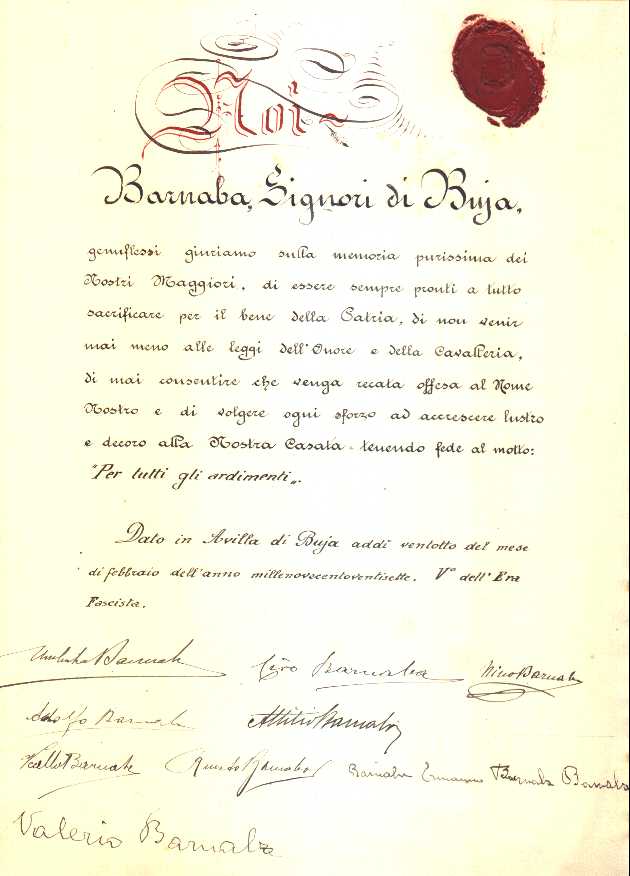 Noi ~
Barnaba, Signori di Buja,
genuflessi giuriamo sulla memoria purissima dei
Nostri Maggiori, di essere sempre pronti a tutto
sacrificare per il bene della Patria, di non venir
mai meno alle leggi dell'Onore e della Cavalleria,
di mai consentire che venga recata offesa al Nome
Nostro e di volgere ogni sforzo ad accrescere lustro
e decoro alla Nostra Casata - tenendo fede al motto:
"Per tutti gli ardimenti".
Dato in Avilla di Buja addì ventotto del mese
di febbraio dell'anno millenovecentoventisette. V° dell'Era
Fascista.
Umberto Barnaba Ciro Barnaba Nino Barnaba
Adolfo Barnaba Attilio Barnaba
Barnaba Barnaba Barnaba Ermanno Barnaba Barnaba
Valerio Barnaba